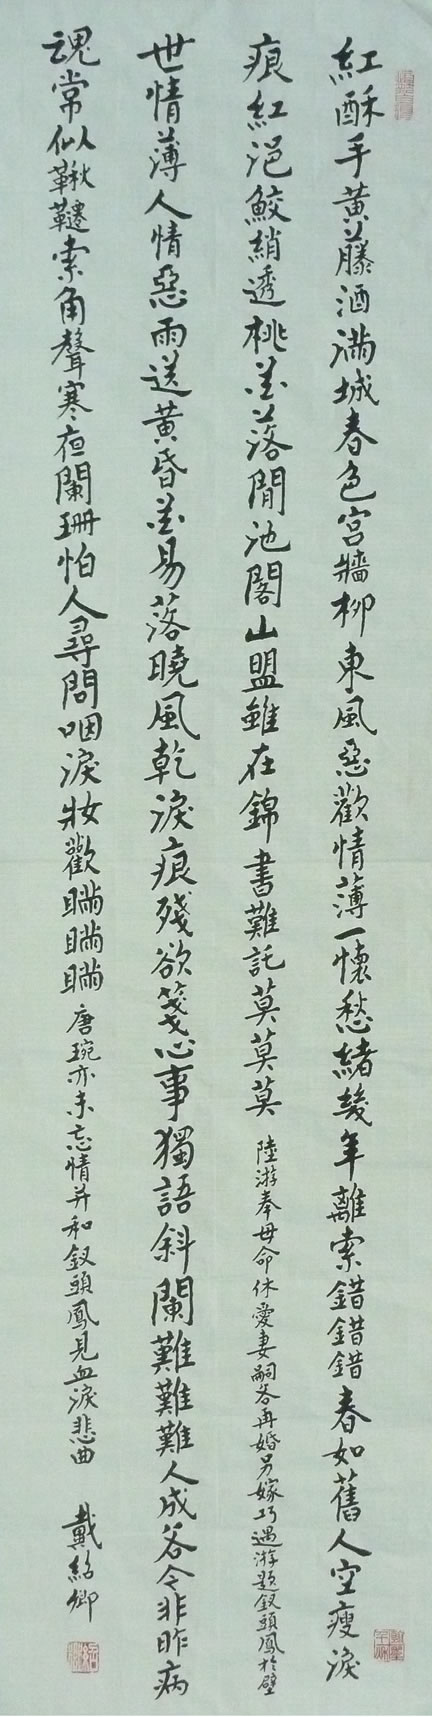 紅酥手黃藤酒滿城春色宮牆柳東風惡歡情薄一懷愁緒幾年離索錯錯錯春如舊人空瘦淚
痕紅浥鮫綃透桃花落閒池閣山盟雖在錦書難託莫莫莫 陸游奉母命休愛妻嗣各再婚另嫁巧遇游題釵頭鳳於壁
世情薄人情惡雨送黃昏花易落曉風乾淚痕殘欲箋心事獨語斜闌難難難人成各今非昨病
魂常似鞦韆索角聲寒夜闌珊怕人尋問咽淚妝歡瞞瞞瞞 唐琬亦未忘情并和釵頭鳳見血淚悲曲 戴紹卿